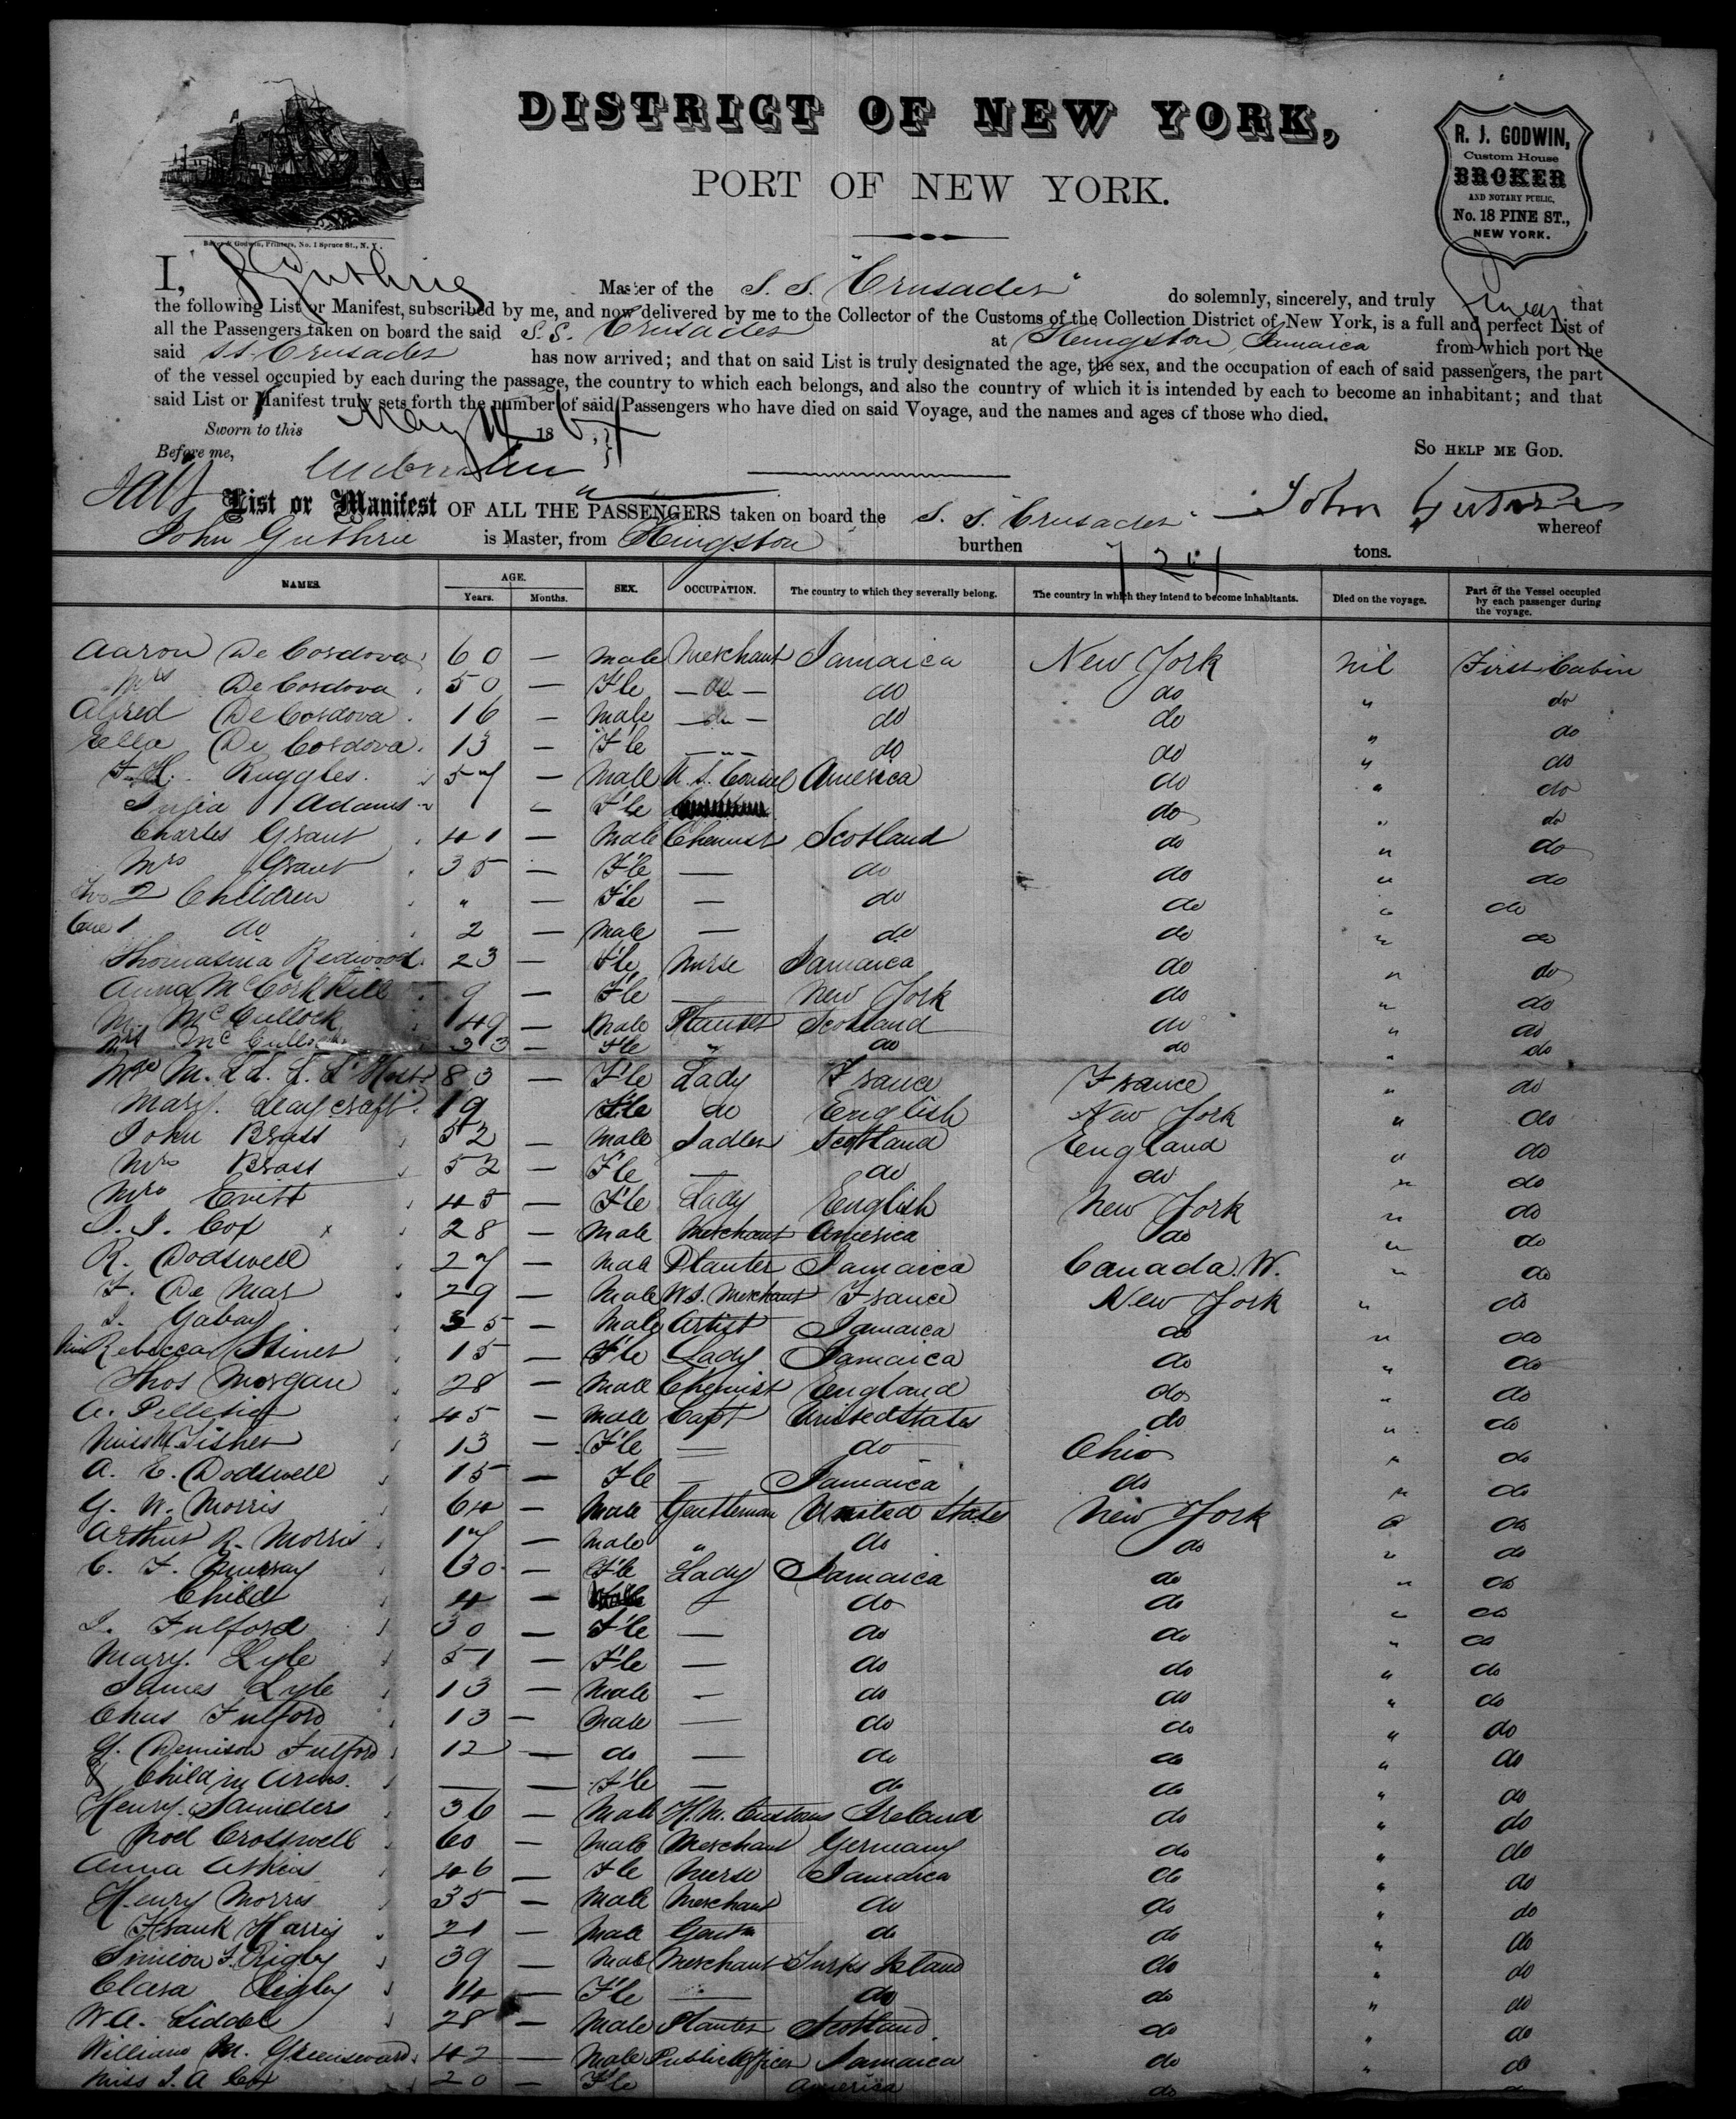 DISTRICT OF NEW YORK,
PORT OF NEW YORK.
R. J. GODWIN,
Custom House
BROKER
AND NOTARY PUBLIC,
No. 18 PINE ST.,
NEW YORK.
Baker & Godwin, Printers, No. 1 Spruce St., N. Y.
I, J Guthrie Master of the S. S. "Crusader" do solemnly, sincerely, and truly swear that
the following List or Manifest, subscribed by me, and now delivered by me to the Collector of the Customs of the Collection District of New York, is a full and perfect List of
all the Passengers taken on board the said S.S. Crusader at Kingston, Jamaica from which port the
said SS. Crusader has now arrived; and that on said List is truly designated the age, the sex, and the occupation of each of said passengers, the part
of the vessel occupied by each during the passage, the country to which each belongs, and also the country of which it is intended by each to become an inhabitant; and that
said List or Manifest truly sets forth the number of said Passengers who have died on said Voyage, and the names and ages of those who died.
Sworn to this May 14 18
So HELP ME GOD.
Before me,
John Guthrie
List or Manifest OF ALL THE PASSENGERS taken on board the S. S. Crusader whereof
John Guthrie is Master, from Kingston burthen tons.
NAMES. AGE. Years. Months. SEX. OCCUPATION. The country to which they severally belong. The country in which they intend to become inhabitants. Died on the voyage. Part of the Vessel occupied by each passenger during the voyage.
Aaron De Cordova 60 — Male Merchant Jamaica New York nil First Cabin
Mrs De Cordova 50 — F'le — do — do do " do
Alfred De Cordova 16 — Male — do — do do " do
Ella De Cordova 13 — F'le — " — do do " do
J. H. Ruggles 57 — Male U. S. Consul America do " do
Julia Adams 7 — F'le do " do
Charles Grant 41 — Male Chemist Scotland do " do
Mrs Grant 35 — F'le — do do " do
Two 2 Children " — F'le — do do " do
One 1 do 2 — Male — do do " do
Thomasina Redwood 23 — F'le Nurse Jamaica do " do
Anna McCorkKill 9 — F'le — New York do " do
Mr McCullock 49 — Male Planter Scotland do " do
Mrs McCullock 33 — F'le " do do " do
Mrs M. L'Host 83 — F'le Lady France France " do
Mary Leaycraft 19 F'le do English New York " do
John Brass 52 — Male Sadler Scotland England " do
Mrs Brass 52 — F'le — do do " do
Mrs Evitt 45 — F'le Lady English New York " do
Cox x 28 — Male Merchant America do " do
R. Dodswell 27 — Male Planter Jamaica Canada W. " do
F. De Mar 29 — Male W I. Merchant France New York " do
Gabay 35 — Male Artist Jamaica do " do
Miss Rebecca Stiner 15 — F'le Lady Jamaica do " do
Thos Morgan 28 — Male Chemist England do " do
A. Pelletier 45 — Male Capt United States do " do
Miss M Fisher 13 — F'le — do Ohio " do
A. E. Dodswell 15 — F'le — Jamaica do " do
G. W. Morris 64 — Male Gentleman United States New York " do
Arthur R. Morris 17 — Male " do do " do
C. F. Murray 30 — F'le Lady Jamaica do " do
Child 4 — do do " do
Fulford 30 — F'le — do do " do
Mary Lyle 51 — F'le — do do " do
James Lyle 13 — Male — do do " do
Chas Fulford 13 — Male — do do " do
G. Denison Fulford 12 — do — do do " do
& Child in Arms. — — F'le — do do " do
Henry Saunders 36 — Male H. M. Customs Ireland do " do
Noel Crosswell 60 — Male Merchant Germany do " do
Anna Atkins 46 — F'le Nurse Jamaica do " do
Henry Morris 35 — Male Merchant do do " do
Frank Harris 21 — Male Gentn do do " do
Simeon J. Rigby 39 — Male Merchant Turks Island do " do
Clara Rigby 14 — F'le — do do " do
W. A. Liddel 28 — Male Planter Scotland do " do
William M. Greensward 42 — Male Public Officer Jamaica do " do
Miss J. A Cox 20 — F'le America do